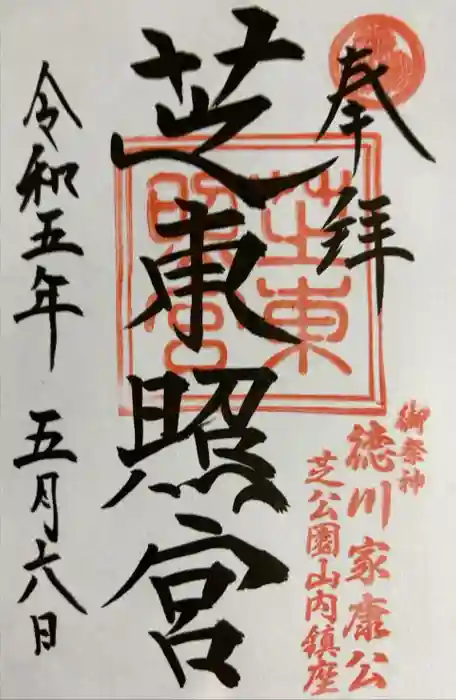 奉拝
芝東照宮
芝東
照宮
御祭神
徳川家康公
芝公園山内鎮座
令和五年 五月六日